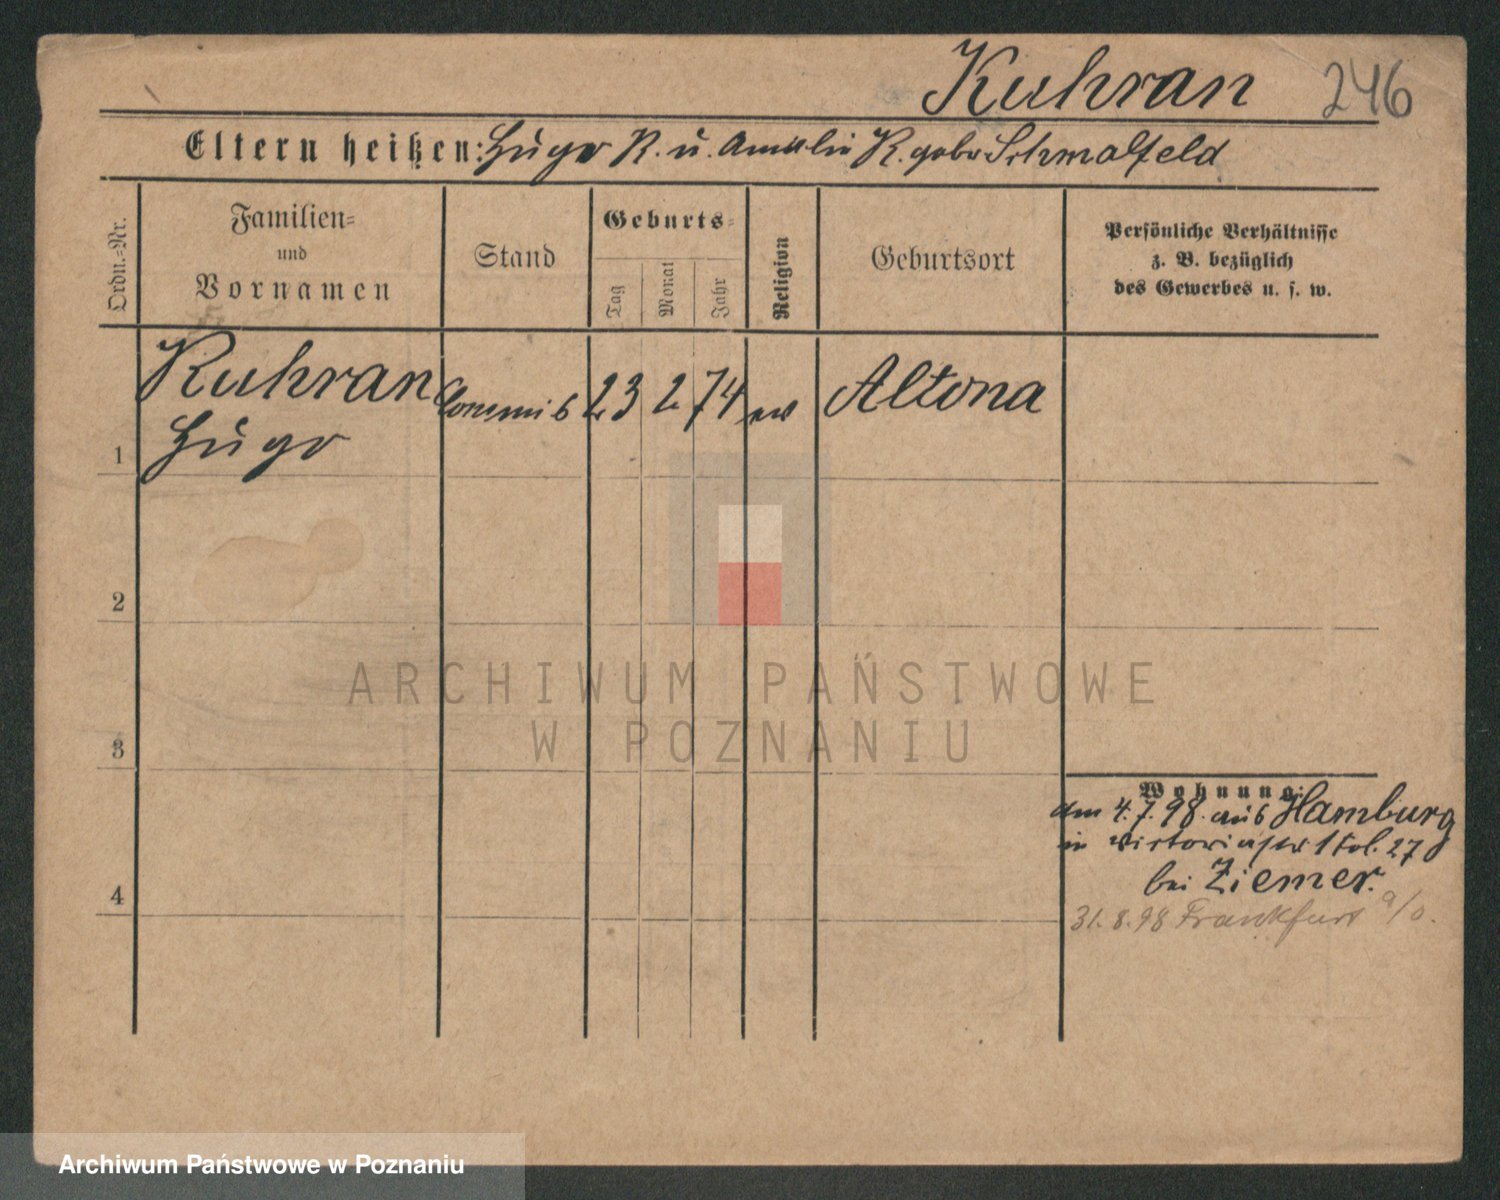 Kuhran 246
Eltern heißen: Hugo K. u. Amalie K. geb. Schmalfeld
Ordn.=Nr.
Familien=
und
Vornamen
Stand
Geburts=
Tag
Monat
Jahr
Religion
Geburtsort
Persönliche Verhältnisse
z. B. bezüglich
des Gewerbes u. s. w.
Kuhran Commis 23 2 74 ev Altona
1 Hugo
2
3
ARCHIWUM PAŃSTWOWE
W POZNANIU
Wohnung:
am 4.7.98. aus Hamburg
in Victoriastr 27
bei Ziemer.
4
31.8.98 Frankfurt a/O.
Archiwum Państwowe w Poznaniu